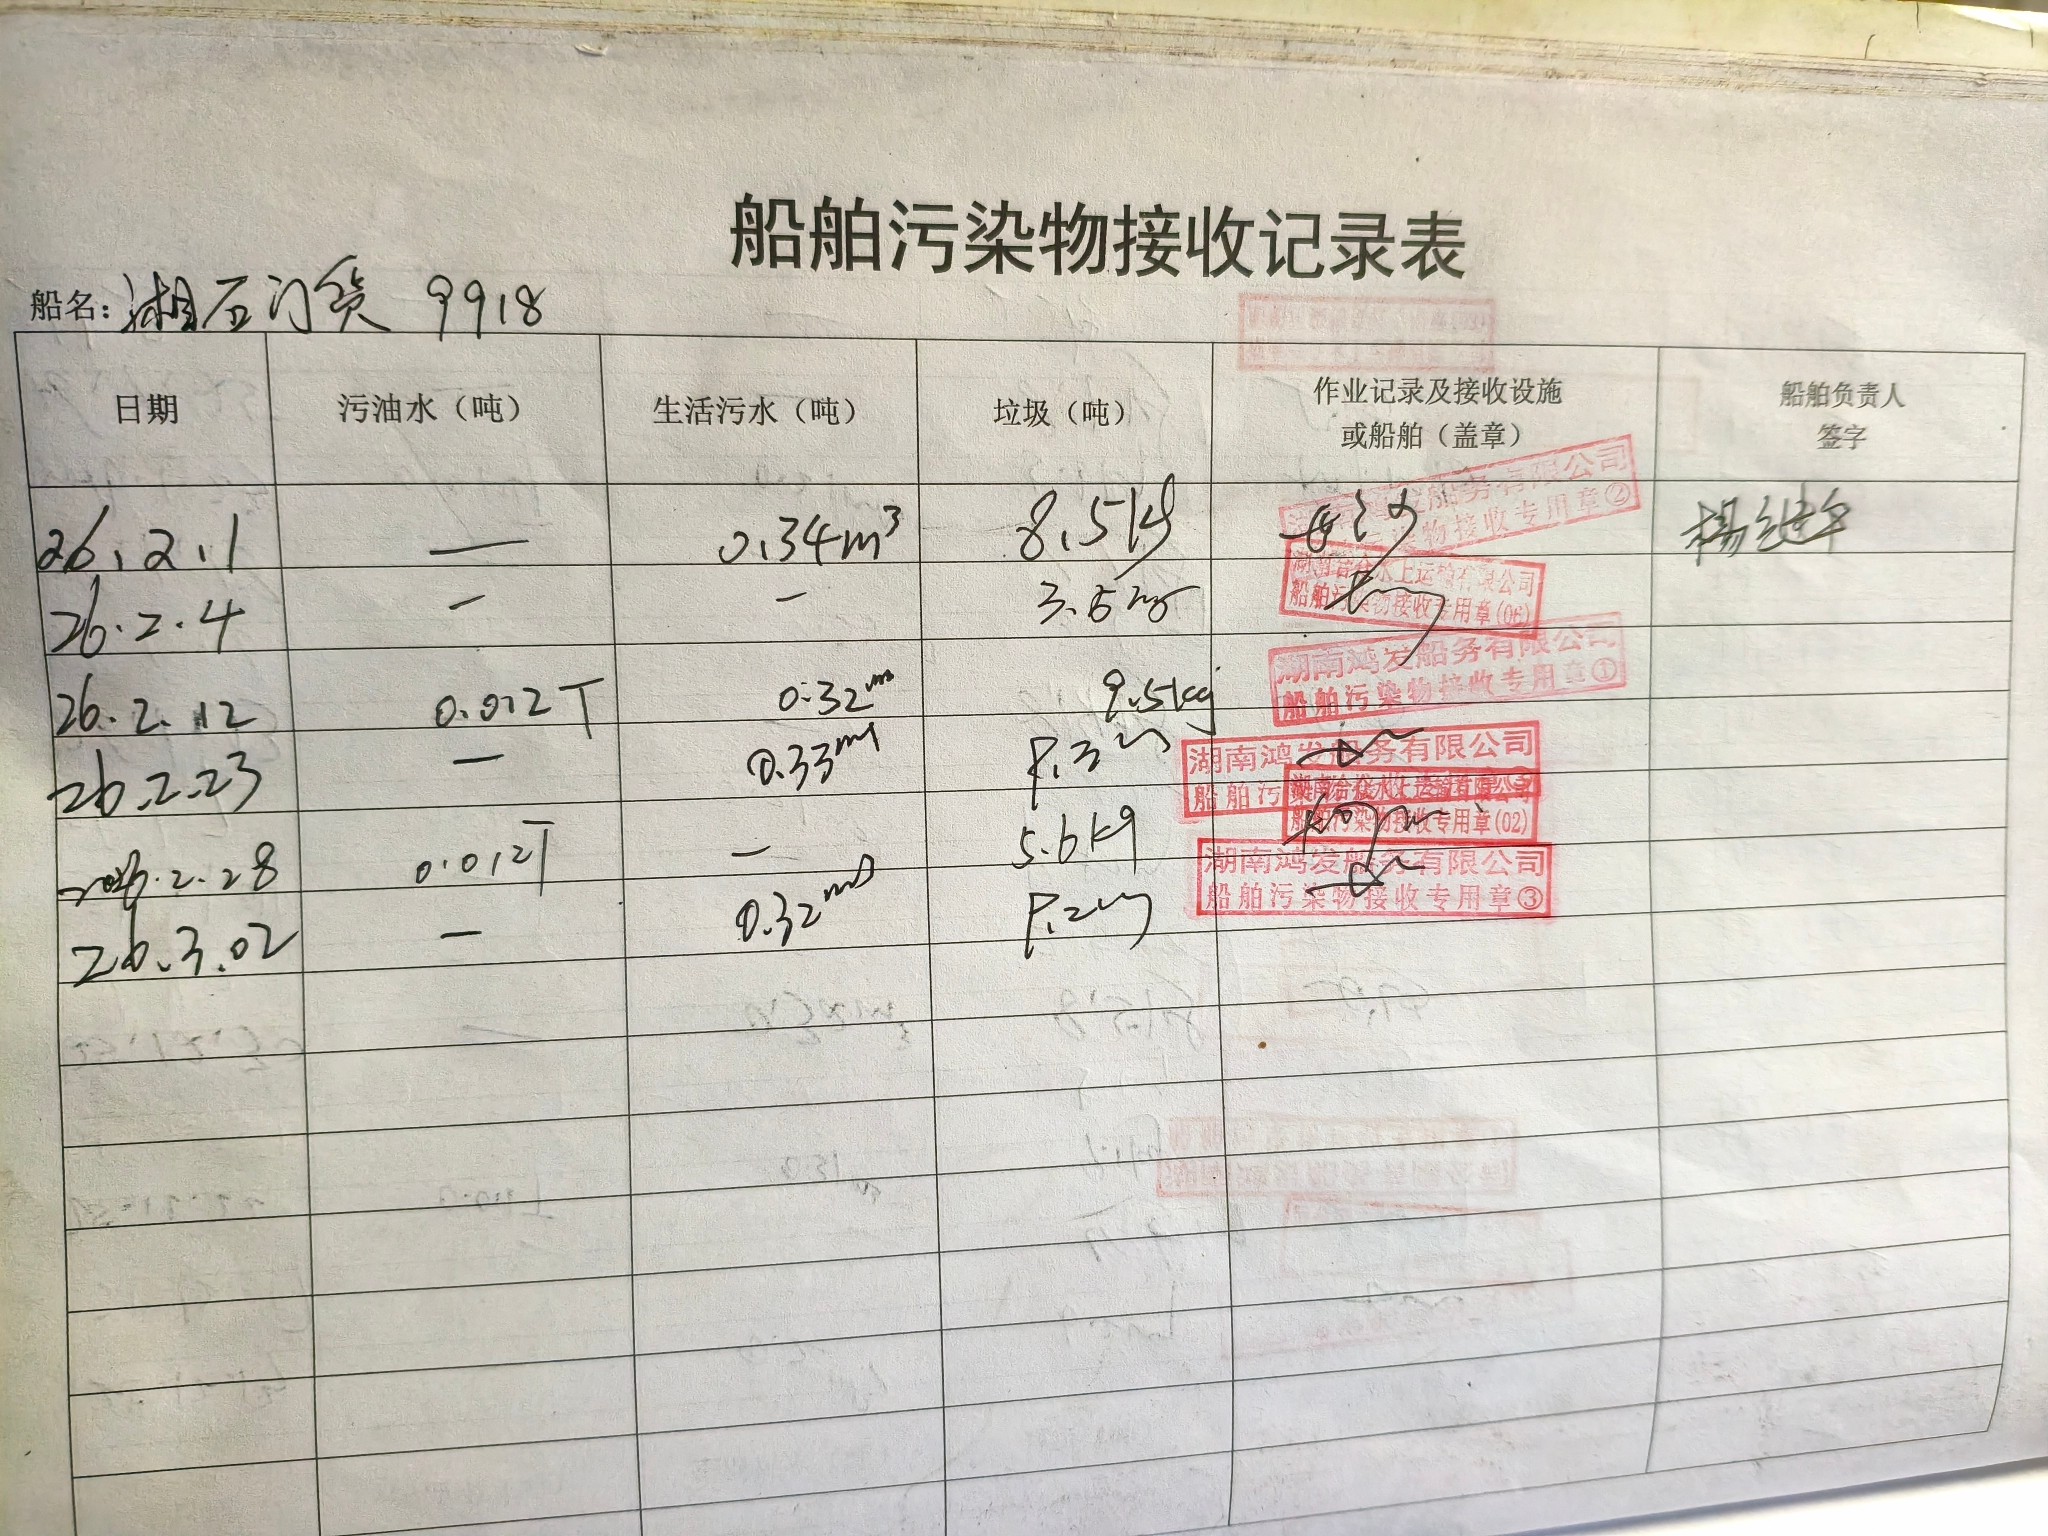 船舶污染物接收记录表
船名：湘石门货 9918
日期 污油水（吨） 生活污水（吨） 垃圾（吨） 作业记录及接收设施或船舶（盖章） 船舶负责人签字
26.2.1 — 0.34m³ 8.5kg 船务有限公司 物接收专用章② 杨
26.2.4 — — 3.5kg 水上运输有限公司 船舶污染物接收专用章(06)
26.2.12 0.012T 0.32m³ 9.5kg 湖南鸿发船务有限公司 船舶污染物接收专用章①
26.2.23 — 0.33m³ 8.3kg 湖南鸿发船务有限公司 船舶污
2026.2.28 0.012T — 5.6kg 水上运输有限公司 船舶污染物接收专用章(02)
26.3.02 — 0.32m³ 8.2kg 湖南鸿发船务有限公司 船舶污染物接收专用章③